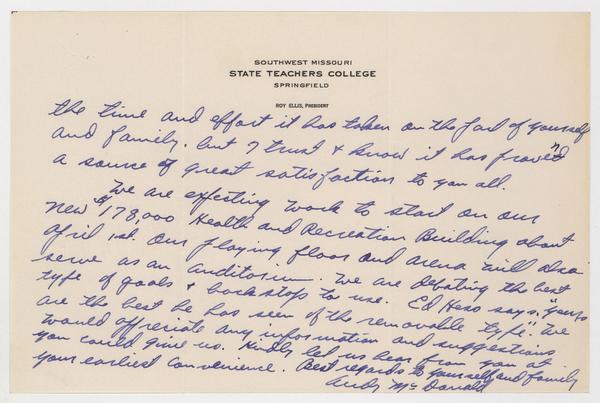 SOUTHWEST MISSOURI
STATE TEACHERS COLLEGE
SPRINGFIELD
ROY ELLIS, PRESIDENT
the time and effort it has taken on the part of yourself
and family. but I trust & know it has proven
a source of great satisfaction to you all.
We are expecting work to start on our
New $178,000 Health and Recreation Building about
April 1st. Our playing floor and arena will also
serve as an auditorium. We are debating the best
type of goals & backstops to use. Ed Hess says, "yours
are the best he has seen of the removable type". We
would appreciate any information and suggestions
you could give us. Kindly let us hear from you at
your earliest convenience. Best regards to yourself and family
Andy McDonald